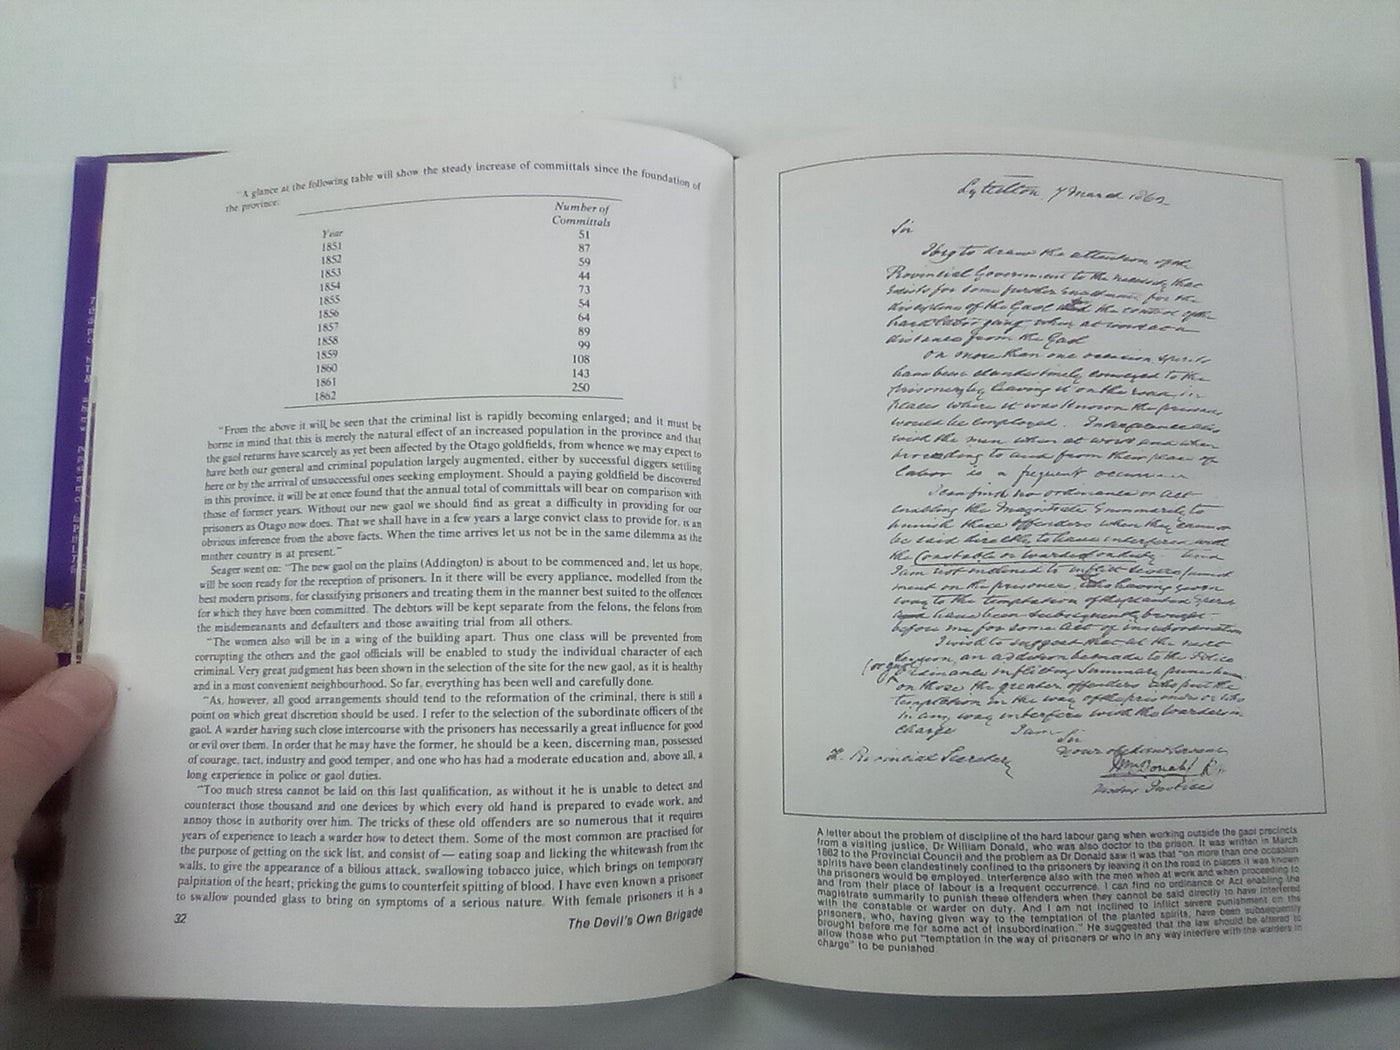 "A glance at the following table will show the steady increase of committals since the foundation of
the province:
Number of
Committals
Year
1851 51
1852 87
1853 59
1854 44
1855 73
1856 54
1857 64
1858 89
1859 99
1860 108
1861 143
1862 250
"From the above it will be seen that the criminal list is rapidly becoming enlarged; and it must be
borne in mind that this is merely the natural effect of an increased population in the province and that
the gaol returns have scarcely as yet been affected by the Otago goldfields, from whence we may expect to
have both our general and criminal population largely augmented, either by successful diggers settling
here or by the arrival of unsuccessful ones seeking employment. Should a paying goldfield be discovered
in this province, it will be at once found that the annual total of committals will bear on comparison with
those of former years. Without our new gaol we should find as great a difficulty in providing for our
prisoners as Otago now does. That we shall have in a few years a large convict class to provide for, is an
obvious inference from the above facts. When the time arrives let us not be in the same dilemma as the
mother country is at present."
Seager went on: "The new gaol on the plains (Addington) is about to be commenced and, let us hope,
will be soon ready for the reception of prisoners. In it there will be every appliance, modelled from the
best modern prisons, for classifying prisoners and treating them in the manner best suited to the offences
for which they have been committed. The debtors will be kept separate from the felons, the felons from
the misdemeanants and defaulters and those awaiting trial from all others.
"The women also will be in a wing of the building apart. Thus one class will be prevented from
corrupting the others and the gaol officials will be enabled to study the individual character of each
criminal. Very great judgment has been shown in the selection of the site for the new gaol, as it is healthy
and in a most convenient neighbourhood. So far, everything has been well and carefully done.
"As, however, all good arrangements should tend to the reformation of the criminal, there is still a
point on which great discretion should be used. I refer to the selection of the subordinate officers of the
gaol. A warder having such close intercourse with the prisoners has necessarily a great influence for good
or evil over them. In order that he may have the former, he should be a keen, discerning man, possessed
of courage, tact, industry and good temper, and one who has had a moderate education and, above all, a
long experience in police or gaol duties.
"Too much stress cannot be laid on this last qualification, as without it he is unable to detect and
counteract those thousand and one devices by which every old hand is prepared to evade work, and
annoy those in authority over him. The tricks of these old offenders are so numerous that it requires
years of experience to teach a warder how to detect them. Some of the most common are practised for
the purpose of getting on the sick list, and consist of — eating soap and licking the whitewash from the
walls, to give the appearance of a bilious attack, swallowing tobacco juice, which brings on temporary
palpitation of the heart; pricking the gums to counterfeit spitting of blood. I have even known a prisoner
to swallow pounded glass to bring on symptoms of a serious nature. With female prisoners it is a
32
The Devil's Own Brigade
Lyttelton 7 March 1862
Sir
I beg to draw the attention of the
Provincial Government to the necessity that
exists for some further enactment for the
discipline of the Gaol and the control of the
hard labor gang when at work at a
distance from the Gaol
On more than one occasion spirits
have been clandestinely conveyed to the
prisoners by leaving it on the road in
places where it was known the prisoners
would be employed. Interference also
with the men when at work and when
proceeding to and from their place of
labor is a frequent occurrence
I can find no ordinance or Act
enabling the Magistrate summarily to
punish these offenders when they cannot
be said directly to have interfered with
the Constable or warder on duty And
I am not inclined to inflict severe punish
ment on the prisoners who having given
way to the temptation of the planted spirits
have been subsequently brought
before me for some act of insubordination
I wish to suggest that at the next
Session an addition be made to the Police
(or gaol) Ordinance inflicting Summary punishment
on those the greater offenders who put the
temptation in the way of the prisoners or who
in any way interfere with the warders in
charge I am
Sir
Your obedient servant
Wm Donald
Visiting Justice
Provincial Secretary
A letter about the problem of discipline of the hard labour gang when working outside the gaol precincts
from a visiting justice, Dr William Donald, who was also doctor to the prison. It was written in March
1862 to the Provincial Council and the problem as Dr Donald saw it was that "on more than one occasion
spirits have been clandestinely confined to the prisoners by leaving it on the road in places it was known
the prisoners would be employed. Interference also with the men when at work and when proceeding to
and from their place of labour is a frequent occurrence. I can find no ordinance or Act enabling the
magistrate summarily to punish these offenders when they cannot be said directly to have interfered
with the constable or warder on duty. And I am not inclined to inflict severe punishment on the
prisoners, who, having given way to the temptation of the planted spirits, have been subsequently
brought before me for some act of insubordination." He suggested that the law should be altered to
allow those who put "temptation in the way of prisoners or who in any way interfere with the warders in
charge" to be punished.